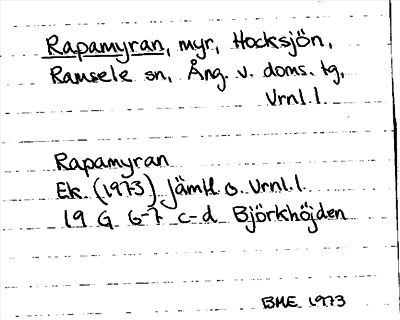 Rapamyran, myr, Hocksjön,
Ramsele sn, Ång. v. doms. tg,
Vrnl.l.
Rapamyran
Ek. (1973) Jämtl. o. Vrnl.l.
19 G 6-7 c-d Björkhöjden
BME 1973